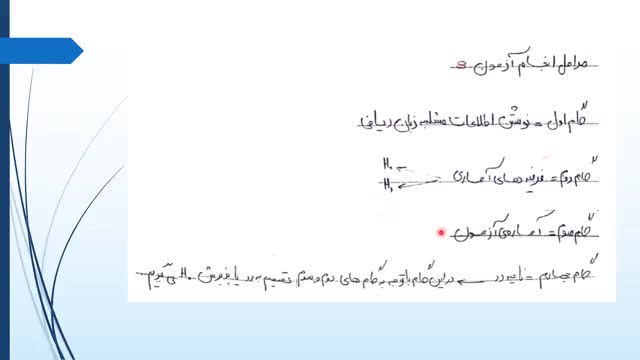 مراحل انجام آزمون :
گام اول = نوشتن اطلاعات مسئله به زبان ریاضی
گام دوم = فرضیه های آماری H₀ H₁
گام سوم = آماره ی آزمون
گام چهارم = ناحیه رد ← در این گام با توجه به گام های دوم و سوم تصمیم به رد یا پذیرش H₀ می گیریم.